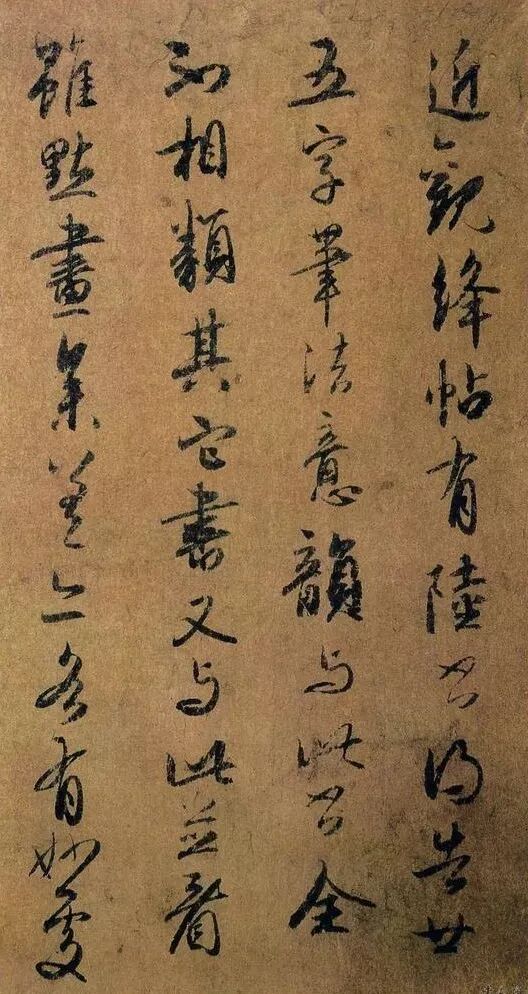 近觀絳帖有陸得告廿
五字筆法意韻与此全
不相類其它書又与此並看
雖點畫參差亦各有妙處